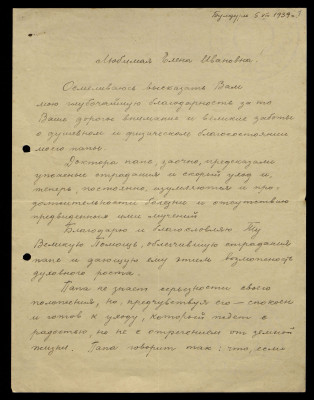 5 VII 1939 г.
Любимая Елена Ивановна.
Осмеливаюсь высказать Вам
мою глубочайшую благодарность за то
Ваше дорогое внимание и великие заботы
о душевном и физическом благосостоянии
моего папы.
Доктора папе, заочно, предсказали
ужасные страдания и скорый уход и,
теперь, постоянно, изумляются и про-
должительности болезни и отсутствию
предвиденных ими мучений.
Благодарю и благословляю Ту
Великую Помощь, облегчившую страдания
папе и дающую ему этим возможность
духовного роста.
Папа не знает серьезности своего
положения, но, предчувствуя его — спокоен
и готов к уходу, который ждет с
радостью, но не с отречением от земной
жизни. Папа говорит так: что, если